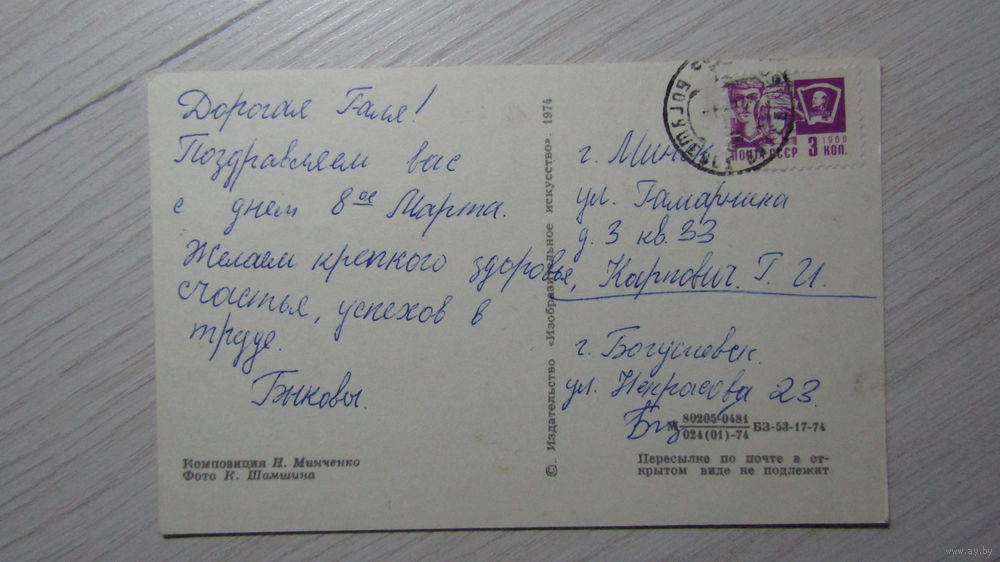 Дорогая Галя!
Поздравляем вас
с днем 8ое Марта.
Желаем крепкого здоровья,
счастья, успехов в
труде.
Быковы.
Композиция Н. Минченко
Фото К. Шамшина
© Издательство «Изобразительное искусство». 1974
ПОЧТА СССР 3 КОП.
1966
г. Минск
ул. Гамарника
д. 3 кв. 33
Карпович. Г. И.
г. Богушевск.
ул. Некрасова 23
М 80205-0481
024(01)-74 БЗ-53-17-74
Пересылке по почте в от-
крытом виде не подлежит
www.ay.by